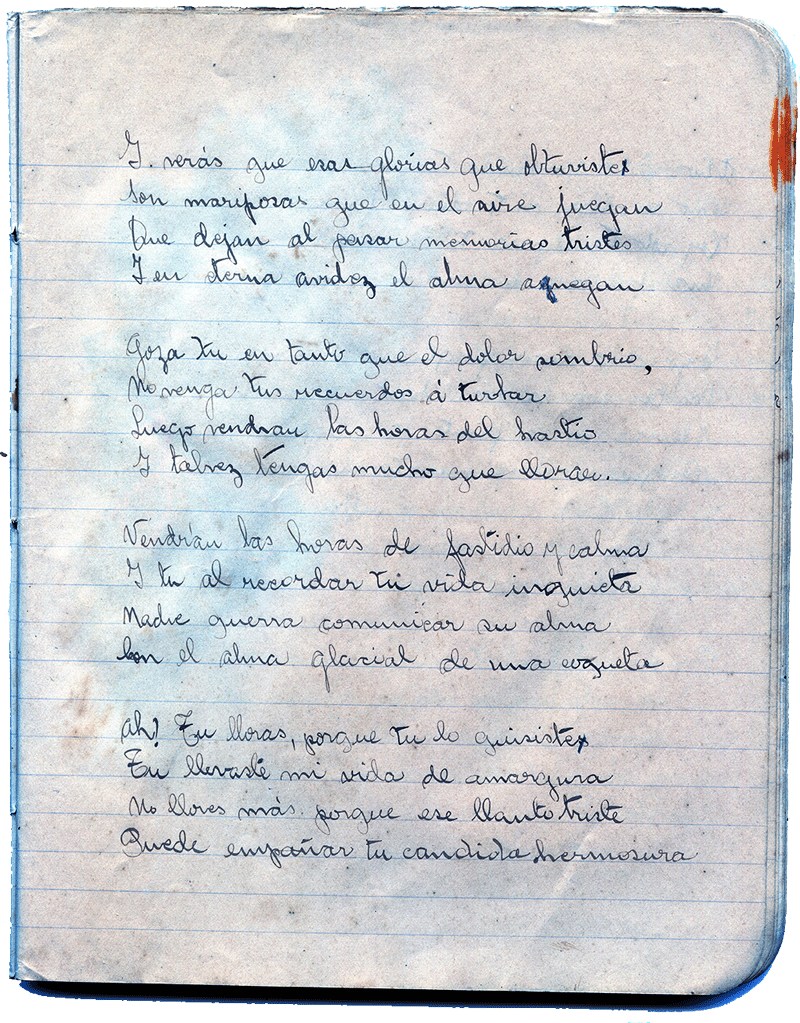 Y. verás que esas glorias que obtuvistes
Son mariposas que en el aire juegan
Que dejan al pasar memorias tristes
Y en eterna avidez el alma anegan
Goza tu en tanto que el dolor sombrio,
No venga tus recuerdos á turbar
Luego vendran las horas del hastio
Y talvez tengas mucho que llorar.
Vendrán las horas de fastidio y calma
Y tu al recordar tu vida inquieta
Nadie querra comunicar su alma
Con el alma glacial de una coqueta
Ah! Tu lloras, porque tu lo quisistes
Tu llevaste mi vida de amargura
No llores más. porque ese llanto triste
Puede empañar tu candida hermosura